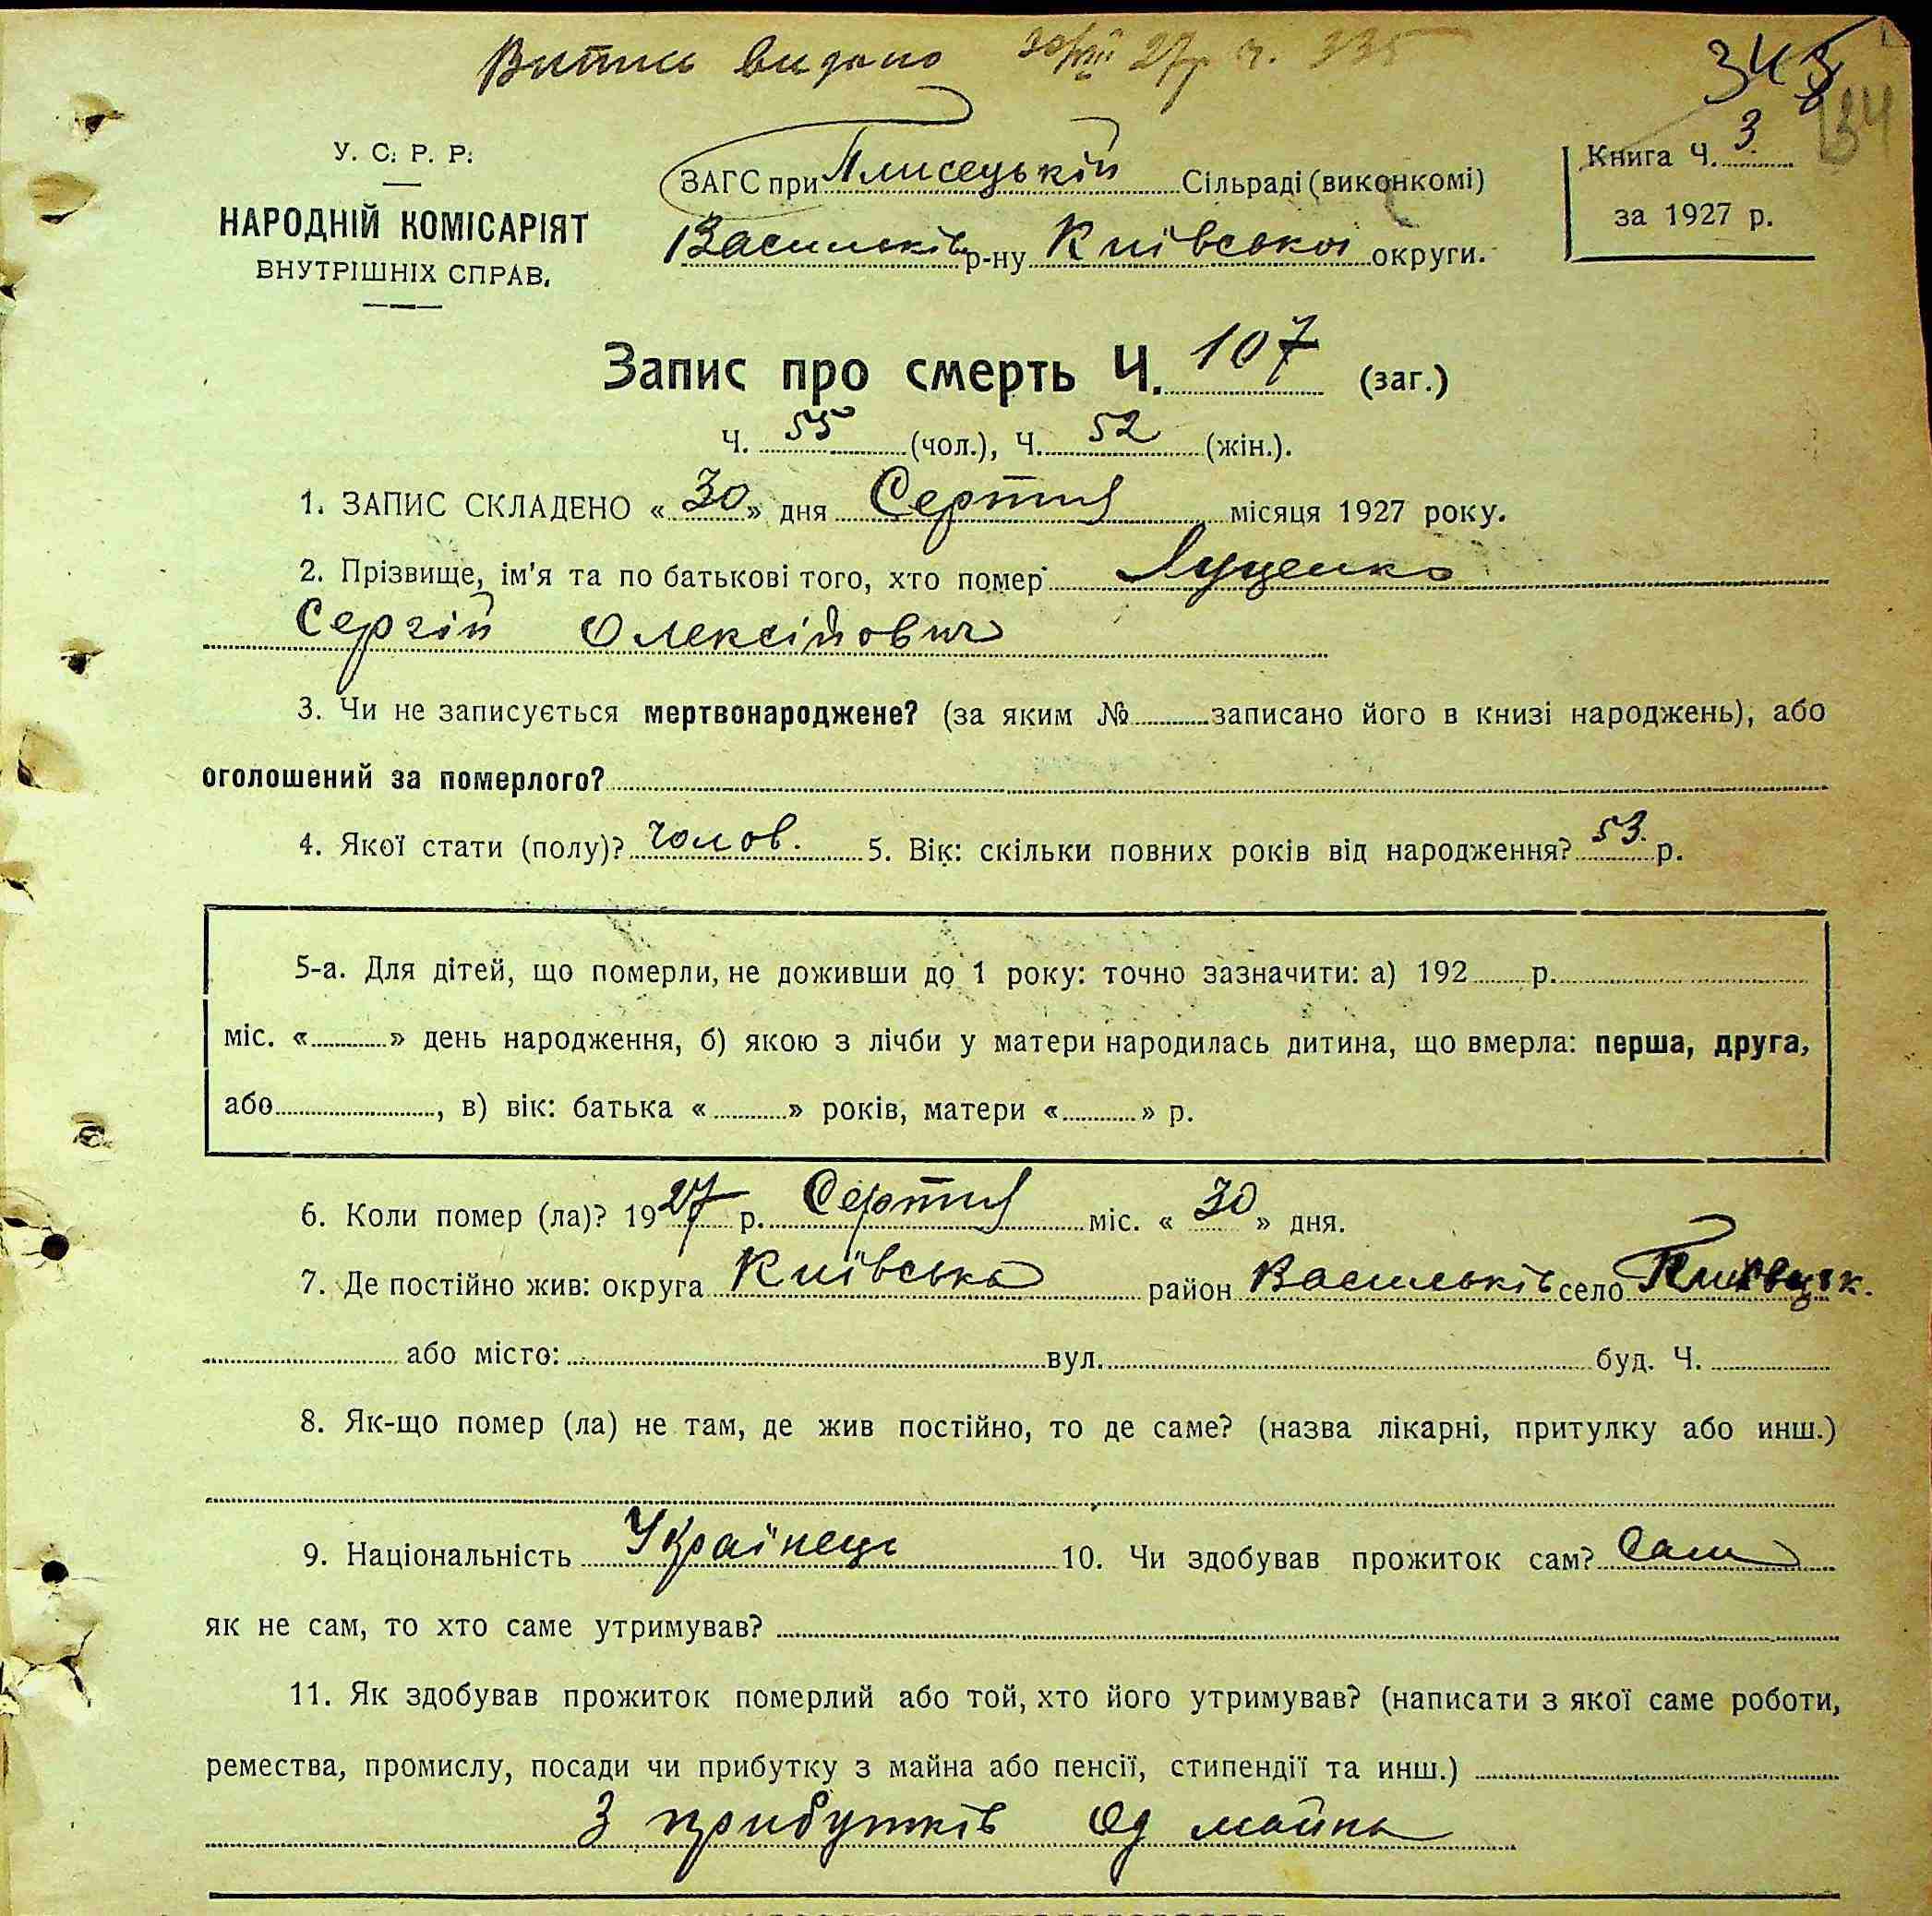 Витис видано 30/VIII 27р ч. 335
345
34
У. С. Р. Р.
НАРОДНІЙ КОМІСАРІЯТ
ВНУТРІШНІХ СПРАВ.
ЗАГС при Плисецькій Сільраді (виконкомі)
Васильків р-ну Київської округи.
Книга Ч. 3
за 1927 р.
Запис про смерть Ч. 107 (заг.)
Ч. 55 (чол.), Ч. 52 (жін.).
1. ЗАПИС СКЛАДЕНО « 30 » дня Серпня місяця 1927 року.
2. Прізвище, ім'я та по батькові того, хто помер Луценко
Сергій Олексійович
3. Чи не записується мертвонароджене? (за яким № записано його в книзі народжень), або
оголошений за померлого?
4. Якої стати (полу)? Чолов. 5. Вік: скільки повних років від народження? 53. р.
5-а. Для дітей, що померли, не доживши до 1 року: точно зазначити: а) 192 р.
міс. « » день народження, б) якою з лічби у матери народилась дитина, що вмерла: перша, друга,
або , в) вік: батька « » років, матери « » р.
6. Коли помер (ла)? 1927 р. Серпня міс. « 30 » дня.
7. Де постійно жив: округа Київська район Васильків село
або місто: вул. буд. Ч.
8. Як-що помер (ла) не там, де жив постійно, то де саме? (назва лікарні, притулку або инш.)
9. Національність Українець 10. Чи здобував прожиток сам? Сам
як не сам, то хто саме утримував?
11. Як здобував прожиток померлий або той, хто його утримував? (написати з якої саме роботи,
ремества, промислу, посади чи прибутку з майна або пенсії, стипендії та инш.)
З прибутків од майна